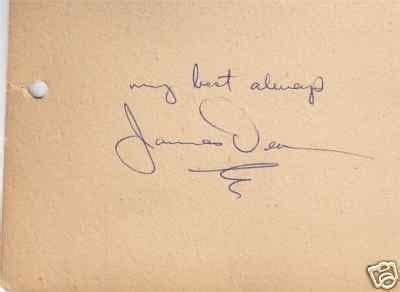 my best always
James Dean